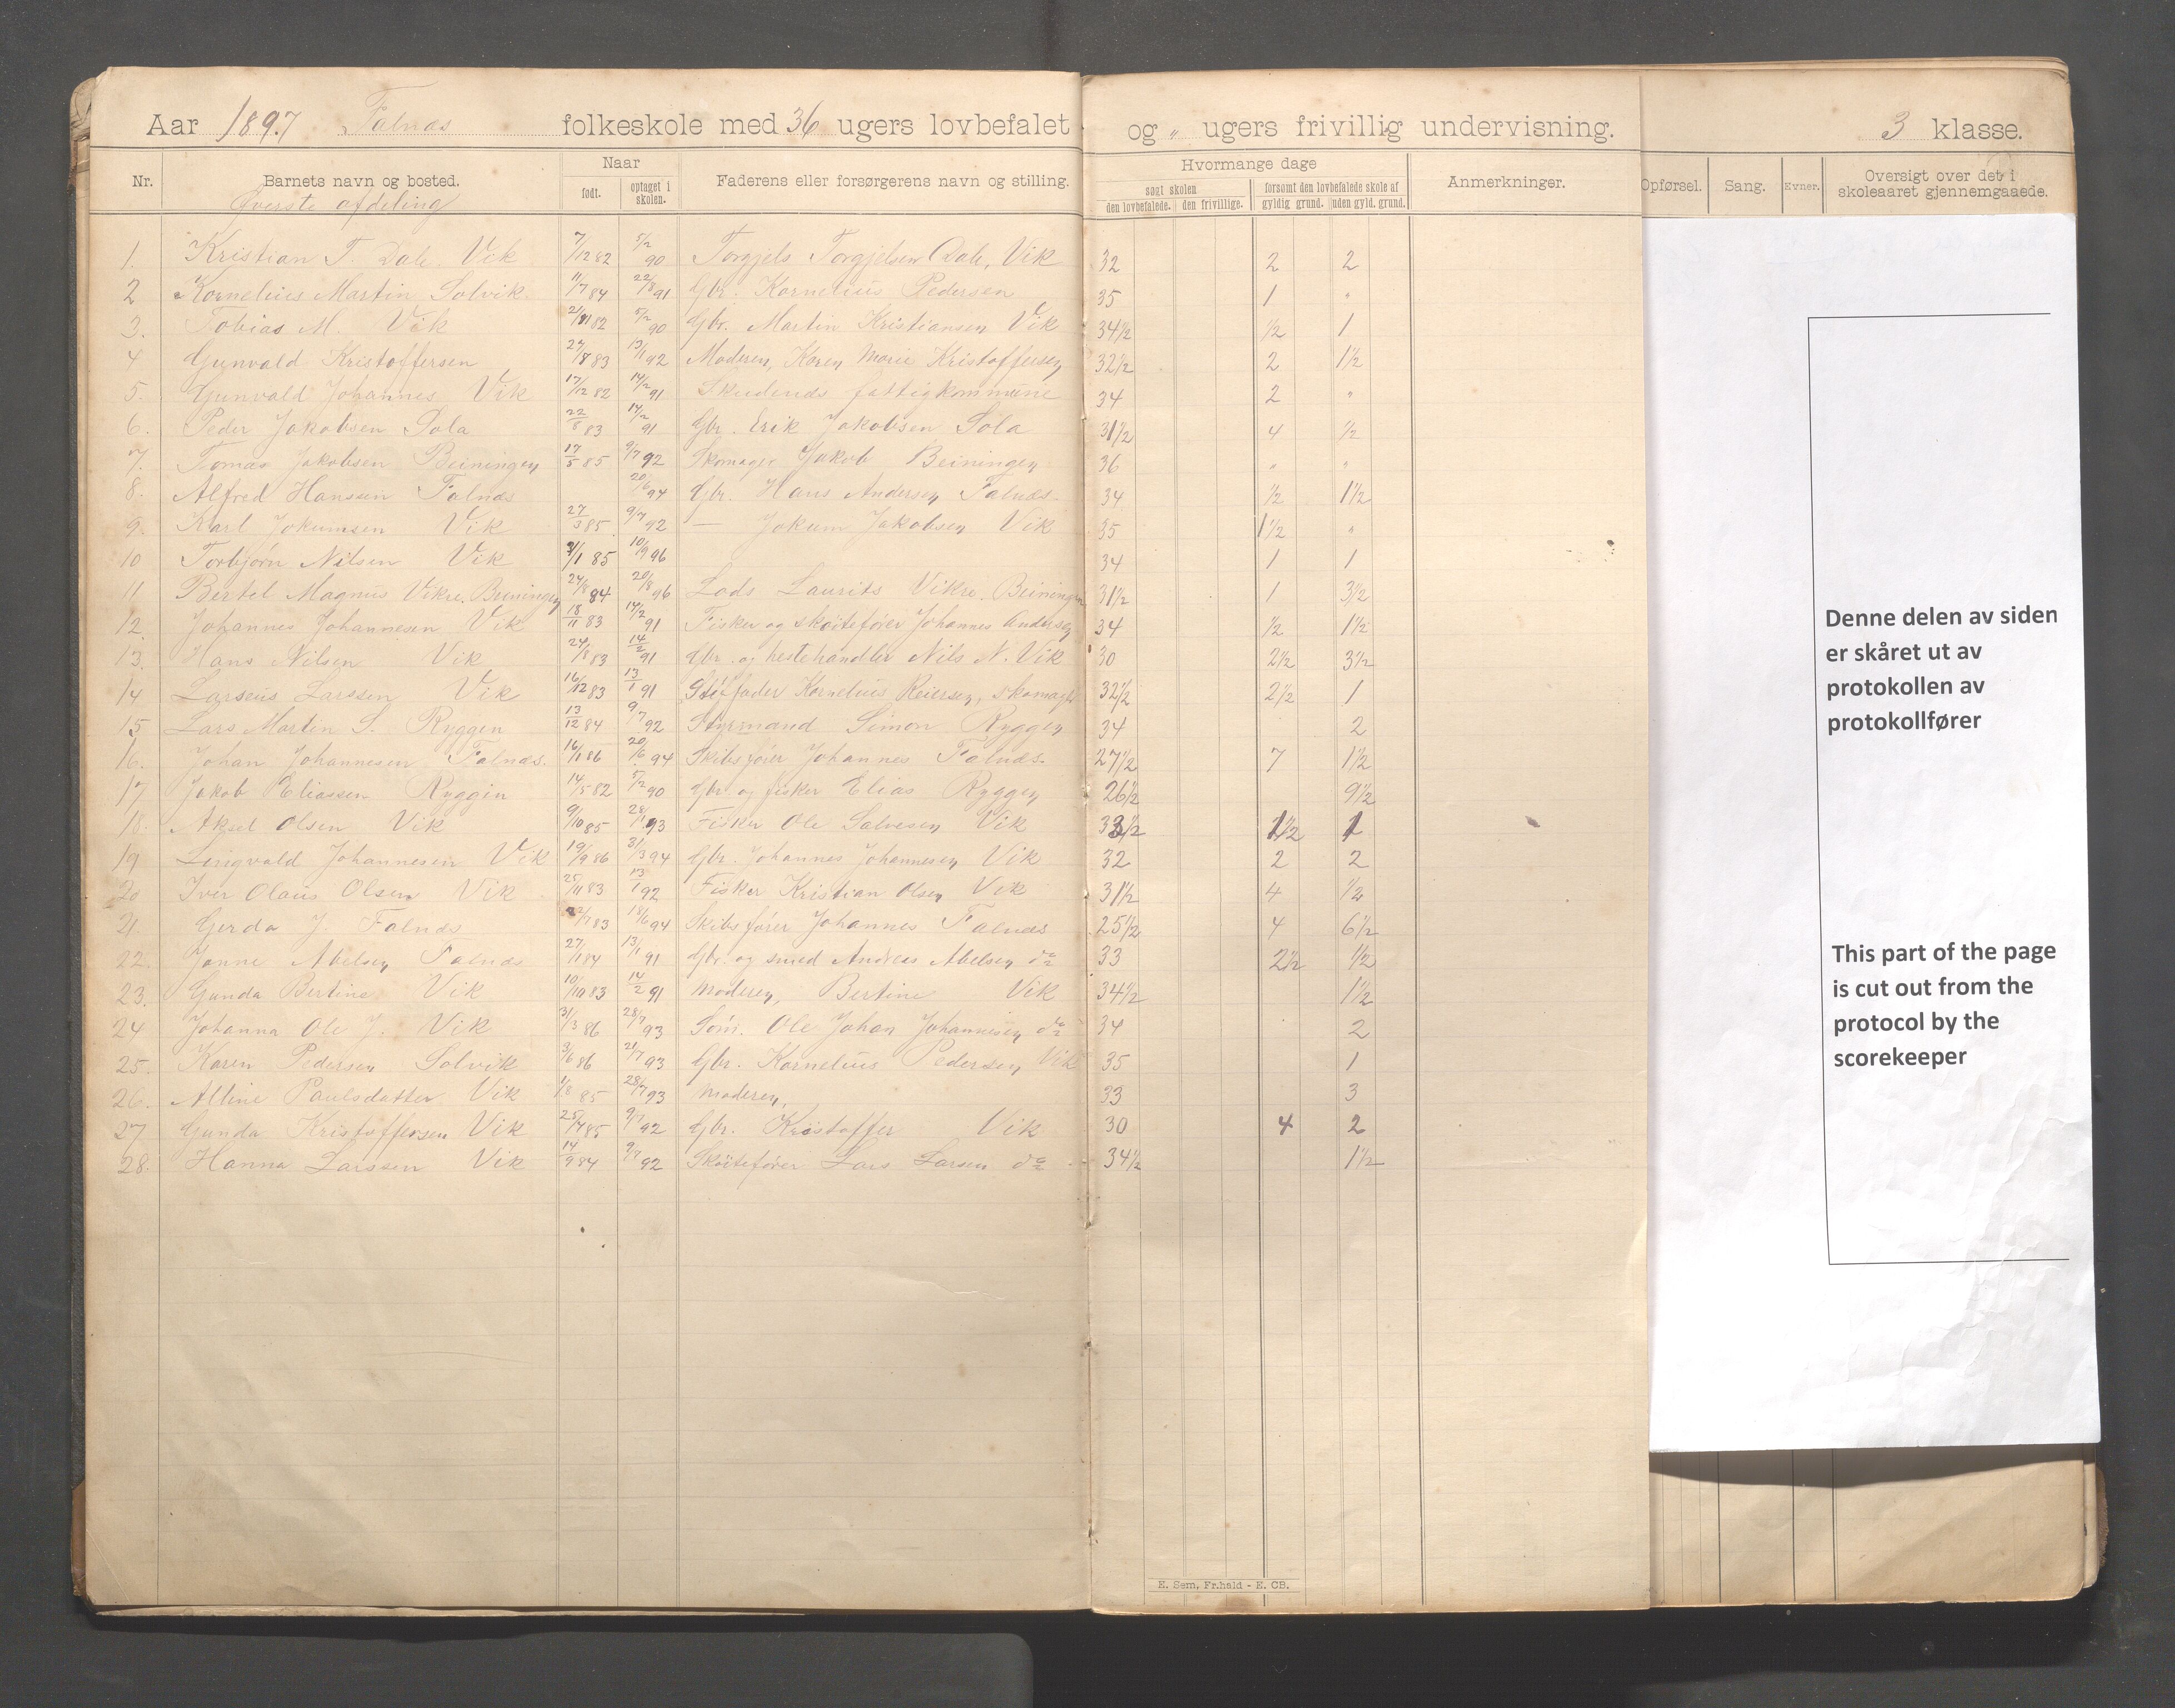 Aar 1897 Falnæs folkeskole med 36 ugers lovbefalet og " ugers frivillig undervisning. 3 klasse.
Nr. Barnets navn og bosted. Naar født. optaget i skolen. Faderens eller forsørgerens navn og stilling. Hvormange dage søgt skolen den lovbefalede. den frivillige. forsømt den lovbefalede skole af gyldig grund. uden gyld. grund. Anmerkninger. Opførsel. Sang. Evner. Oversigt over det i skoleaaret gjennemgaaede.
Øverste afdeling
1. Kristian T. Dale. Vik 7/12 82 5/2 90 Torgjels Torgjelsen Dale, Vik 32 2 2
2 Kornelius Martin Solvik. 11/7 84 22/8 91 Gbr. Kornelius Pedersen 35 1 "
3. Tobias M. Vik 2/11 82 5/2 90 Gbr. Martin Kristiansen Vik 34½ ½ 1
4 Gunvald Kristoffersen 27/8 83 13/1 92 Moderen, Karen Marie Kristoffersen 32½ 2 1½
5. Gunvald Johannes Vik 17/12 82 14/2 91 Skudenæs fattigkommune 34 2 "
6. Peder Jakobsen Sola 22/8 83 14/2 91 Gbr. Erik Jakobsen Sola 31½ 4 ½
7. Tomas Jakobsen Beiningen 17/5 85 9/7 92 Skomager Jakob Beiningen 36 " "
8. Alfred Hansen Falnæs 20/6 94 Gbr. Hans Andersen Falnæs. 34 ½ 1½
9. Karl Jokumsen Vik 27/3 85 9/7 92 — Jokum Jakobsen Vik 35 1½ "
10 Torbjørn Nilsen Vik /1 85 10/9 96 34 1 1
11 Bertel Magnus Vikre. Beiningen 24/8 84 20/8 96 Lods Laurits Vikre. Beiningen 31½ 1 3½
12. Johannes Johannesen Vik 18/11 83 14/2 91 Fisker og skøitefører Johannes Andersen 34 ½ 1½
13. Hans Nilsen Vik 24/8 83 14/2 91 Gbr. og hestehandler Nils N. Vik 30 2½ 3½
14 Larseus Larssen Vik 16/12 83 13/1 91 Stiffader Kornelius Reiersen, skomager 32½ 2½ 1
15 Lars Martin S. Ryggen 13/12 84 9/7 92 Styrmand Simon Ryggen 34 2
16. Johan Johannesen Falnæs. 16/1 86 20/6 94 Skibsfører Johannes Falnæs. 27½ 7 1½
17 Jakob Eliassen Ryggen 14/5 82 5/2 90 Gbr og fisker Elias Ryggen 26½ 9½
18. Aksel Olsen Vik 9/10 85 28/11 93 Fisker Ole Salvesen Vik 33½ 1½ 1
19 Lingvald Johannesen Vik 19/9 86 31/3 94 Gbr. Johannes Johannesen Vik 32 2 2
20 Iver Olaus Olsen Vik 25/11 83 13/1 92 Fisker Kristian Olsen Vik 31½ 4 ½
21. Gerda J. Falnæs /7 83 18/6 94 Skibsfører Johannes Falnæs 25½ 4 6½
22. Janne Abelsen Falnæs 27/1 84 13/1 91 Gbr. og smed Andreas Abelsen do 33 2½ ½
23. Gunda Bertine Vik 10/10 83 14/2 91 Moderen, Bertine Vik 34½ 1½
24 Johanna Ole J. Vik 31/3 86 28/7 93 Søm. Ole Johan Johannesen do 34 2
25. Karen Pedersen Solvik 3/6 86 21/7 93 Gbr. Kornelius Pedersen Vik 35 1
26. Alline Paulsdatter Vik 1/8 85 28/7 93 Moderen, 33 3
27 Gunda Kristoffersen Vik 25/4 85 9/7 92 Gbr. Kristoffer Vik 30 4 2
28. Hanna Larssen Vik 14/9 84 9/7 92 Skøitefører Lars Larsen do 34½ 1½
E. Sem, Fr.hald - E. CB.
Denne delen av siden
er skåret ut av
protokollen av
protokollfører
This part of the page
is cut out from the
protocol by the
scorekeeper